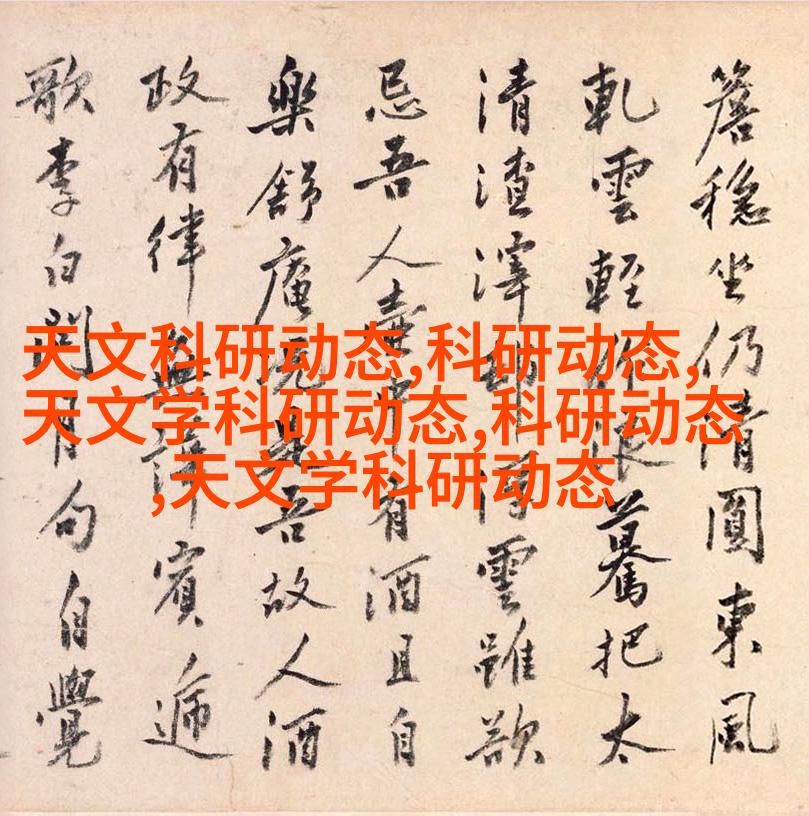 天文科研动态,科研动态,
天文学科研动态,科研动态
,天文学科研动态
簷穩坐仍清圓東風
軋雲輕驀把太
清渣滓雲雖欲
忌吾人壺中有酒且自
樂舒庵况是吾故人酒
政有律無譁賓遞
歌李白問月句自覺